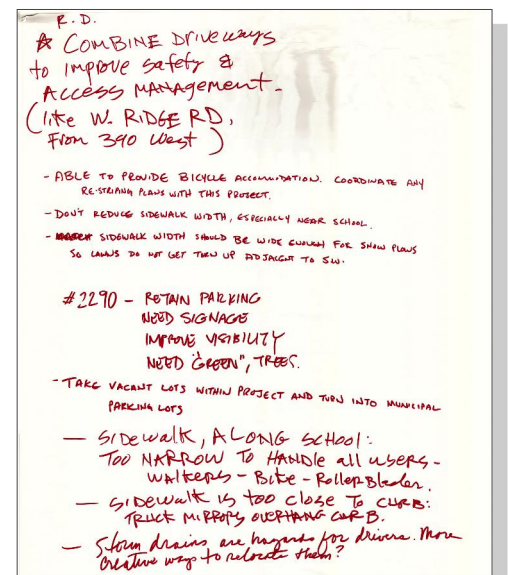 R.D.
☆ COMBINE Driveways
to improve safety &
ACCESS MANAGEMENT.
(like W. RIDGE RD,
From 390 West)
- ABLE TO PROVIDE BICYCLE ACCOMMODATION. COORDINATE ANY
RE-STRIPING PLANS WITH THIS PROJECT.
- DON'T REDUCE SIDEWALK WIDTH, ESPECIALLY NEAR SCHOOL.
- SIDEWALK WIDTH SHOULD BE WIDE ENOUGH FOR SNOW PLOWS
SO LAWNS DO NOT GET TORN UP ADJACENT TO SW.
#2290 - RETAIN PARKING
NEED SIGNAGE
IMPROVE VISIBILITY
NEED "GREEN", TREES.
- TAKE VACANT LOTS WITHIN PROJECT AND TURN INTO MUNICIPAL
PARKING LOTS
— SIDEWALK, ALONG SCHOOL:
TOO NARROW TO HANDLE all users -
WALKERS - Bike - RollerBlader.
— SIDEWALK is too close To CURB:
TRUCK MIRRORS OVERHANG CURB.
— Storm drains are hazards for drivers. More
creative way to relocate them?